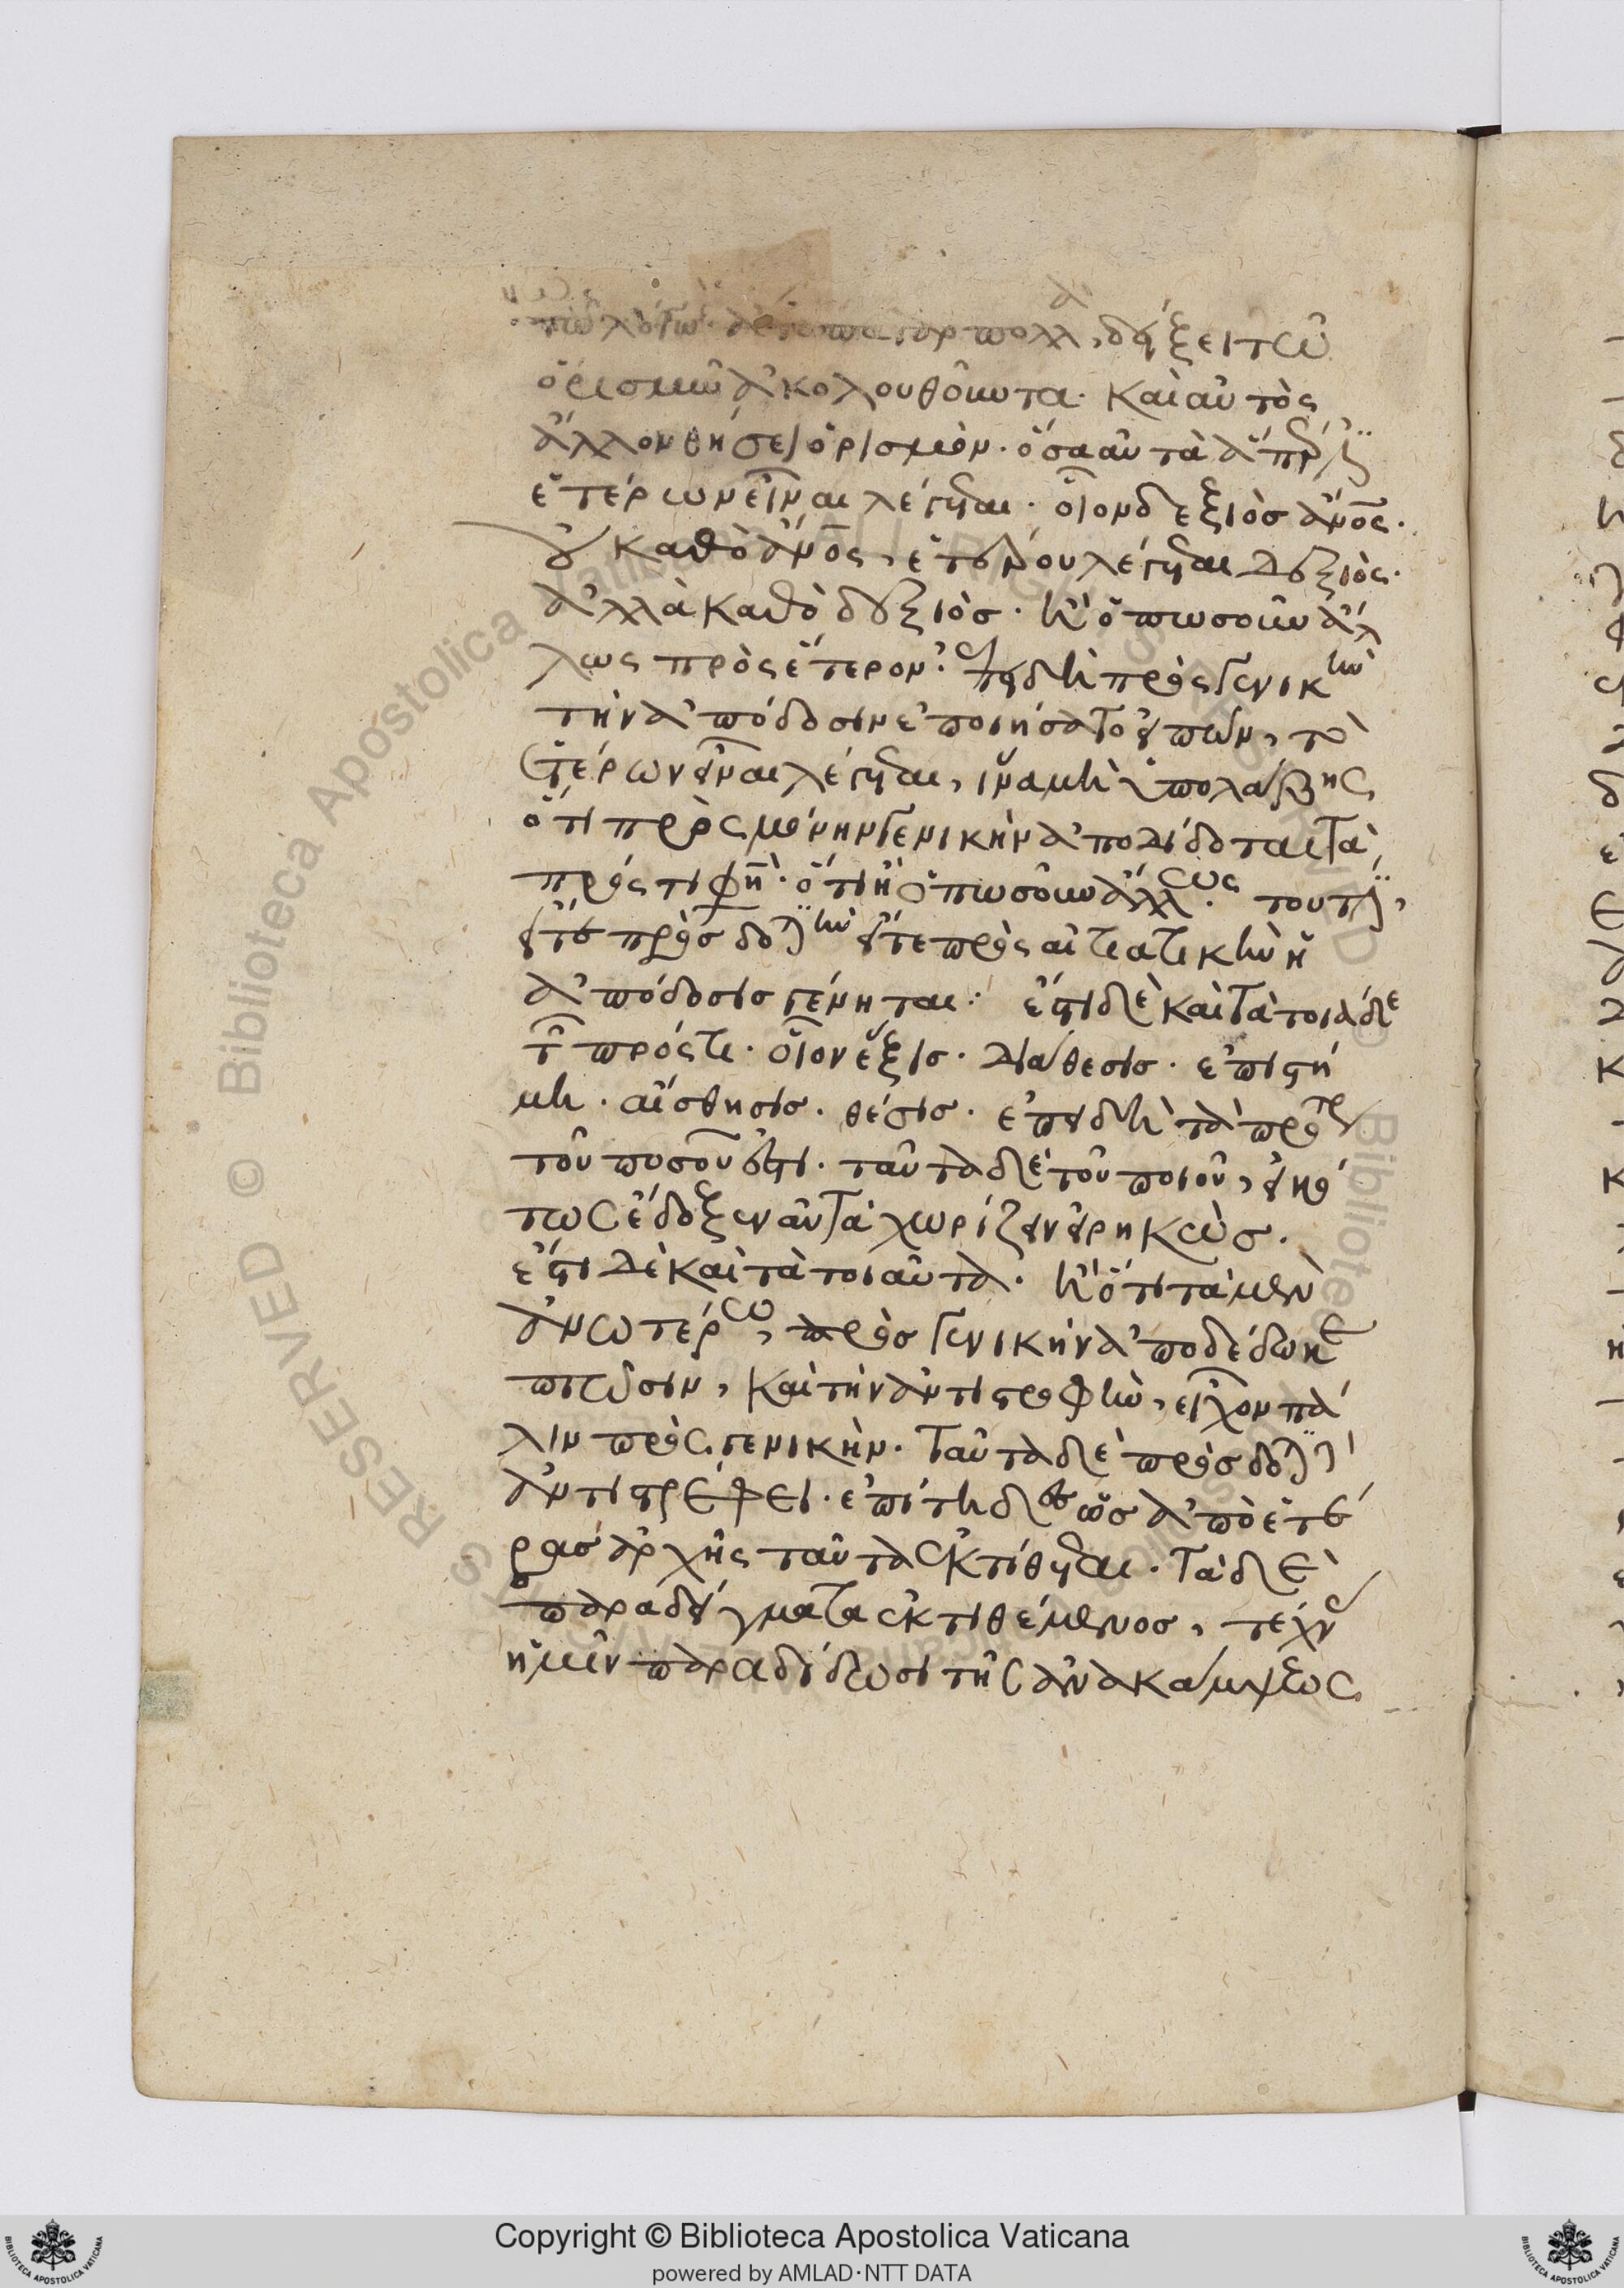 τῶ λόγω· ἄτοπα γὰρ πολλὰ, δείξει τῶ
ὁρισμῶ ἀκολουθοῦντα. Καὶ αὐτὸς
ἄλλον θήσει ὁρισμόν. ὅσα αὐτὰ ἅπερ ἐστὶν
ἑτέρων εἶναι λέγεται. οἷον δεξιὸσ ἄνος.
οὐ καθὸ ἄνος, ἑτέρου λέγεται δεξιὸς.
ἀλλὰ καθὸ δεξιὸσ. ἢ ὁπωσοῦν ἄλ
λως πρὸς ἕτερον· ἐπειδὴ πρὸς γενικὴν
τὴν ἀπόδοσιν ἐποιήσατο εἰπὼν, τὸ
ἑτέρων εἶναι λέγεται, ἵνα μὴ ὑπολάβης
ὅτι πρὸς μόνην γενικὴν ἀποδίδοται τὰ
πρός τι φη· ὅτι ἢ ὁπωσοῦν ἄλλως. τουτέστιν,
εἴτε πρὸσ δοτικὴν εἴτε πρὸς αἰτιατικὴν ἡ
ἀπόδοσισ γένηται· ἔστι δὲ καὶ τὰ τοιάδε
τῶν πρός τι. οἷον ἕξισ. διάθεσισ. ἐπιστή
μη. αἴσθησισ. θέσισ. ἐπειδὴ τὰ πρότερα
τοῦ ποσοῦ ἐστι. ταῦτα δὲ τοῦ ποιοῦ, εἰκό
τωσ ἔδοξεν αὐτὰ χωρίζειν εἰρηκὼσ.
ἔστι δὲ καὶ τὰ τοιαῦτα. ἢ ὅτι τὰ μὲν
ἀνωτέρω, πρὸσ γενικὴν ἀποδέδωκε
πτῶσιν, καὶ τὴν ἀντιστροφὴν, εἶχον πά
λιν πρὸς γενικὴν. ταῦτα δὲ πρὸσ δοτικὴν
ἀντιστρέφει. ἐπίτηδεσ ὡσ ἀπὸ ἑτέ
ρασ ἀρχῆς ταῦτα ἐκτίθεται. τὰ δὲ
παραδείγματα ἐκτιθέμενοσ, τέχνην
ἡμῖν παραδίδωσι τῆς ἀνακάμψεως
Copyright © Biblioteca Apostolica Vaticana
powered by AMLAD·NTT DATA